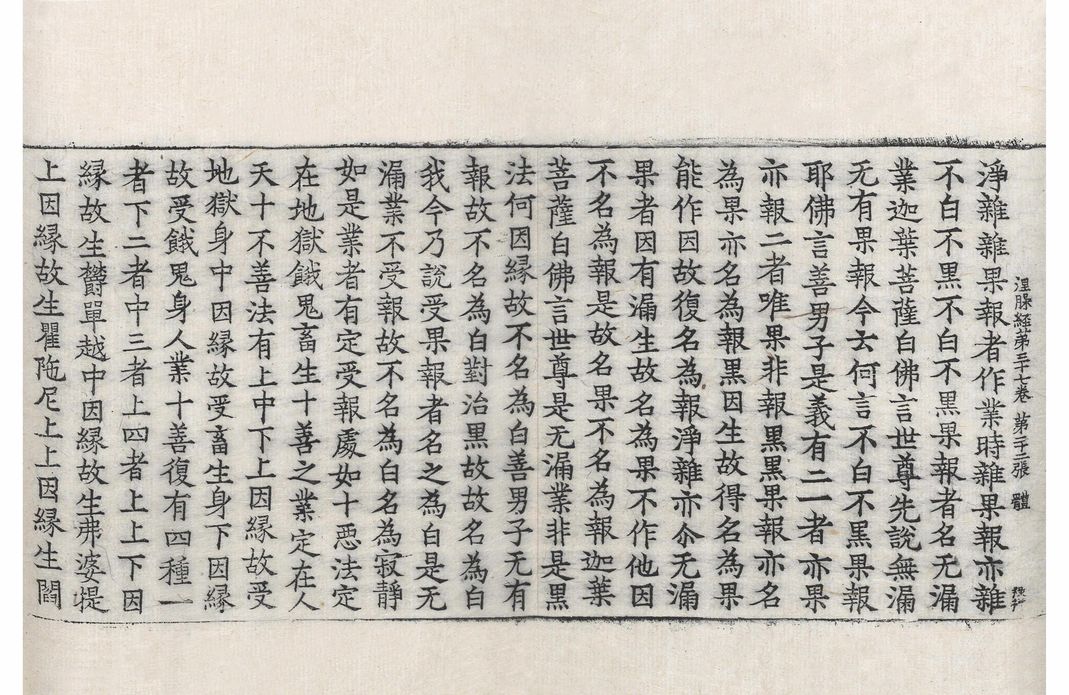 涅槃経苐三十七卷 苐二十二張 體
淨雜雜果報者作業時雜果報亦雜
不白不黑不白不黑果報者名无漏
業迦葉菩薩白佛言世尊先說無漏
无有果報今云何言不白不黑果報
耶佛言善男子是義有二一者亦果
亦報二者唯果非報黑黑果報亦名
為果亦名為報黑因生故得名為果
能作因故復名為報淨雜亦尒无漏
果者因有漏生故名為果不作他因
不名為報是故名果不名為報迦葉
菩薩白佛言世尊是无漏業非是黑
法何因縁故不名為白善男子无有
報故不名為白對治黑故故名為白
我今乃說受果報者名之為白是无
漏業不受報故不名為白名為寂靜
如是業者有定受報處如十惡法定
在地獄餓鬼畜生十善之業定在人
天十不善法有上中下上因縁故受
地獄身中因縁故受畜生身下因縁
故受餓鬼身人業十善復有四種一
者下二者中三者上四者上上下因
縁故生欝單越中因縁故生弗婆提
上因縁故生瞿陁尼上上因縁生閻